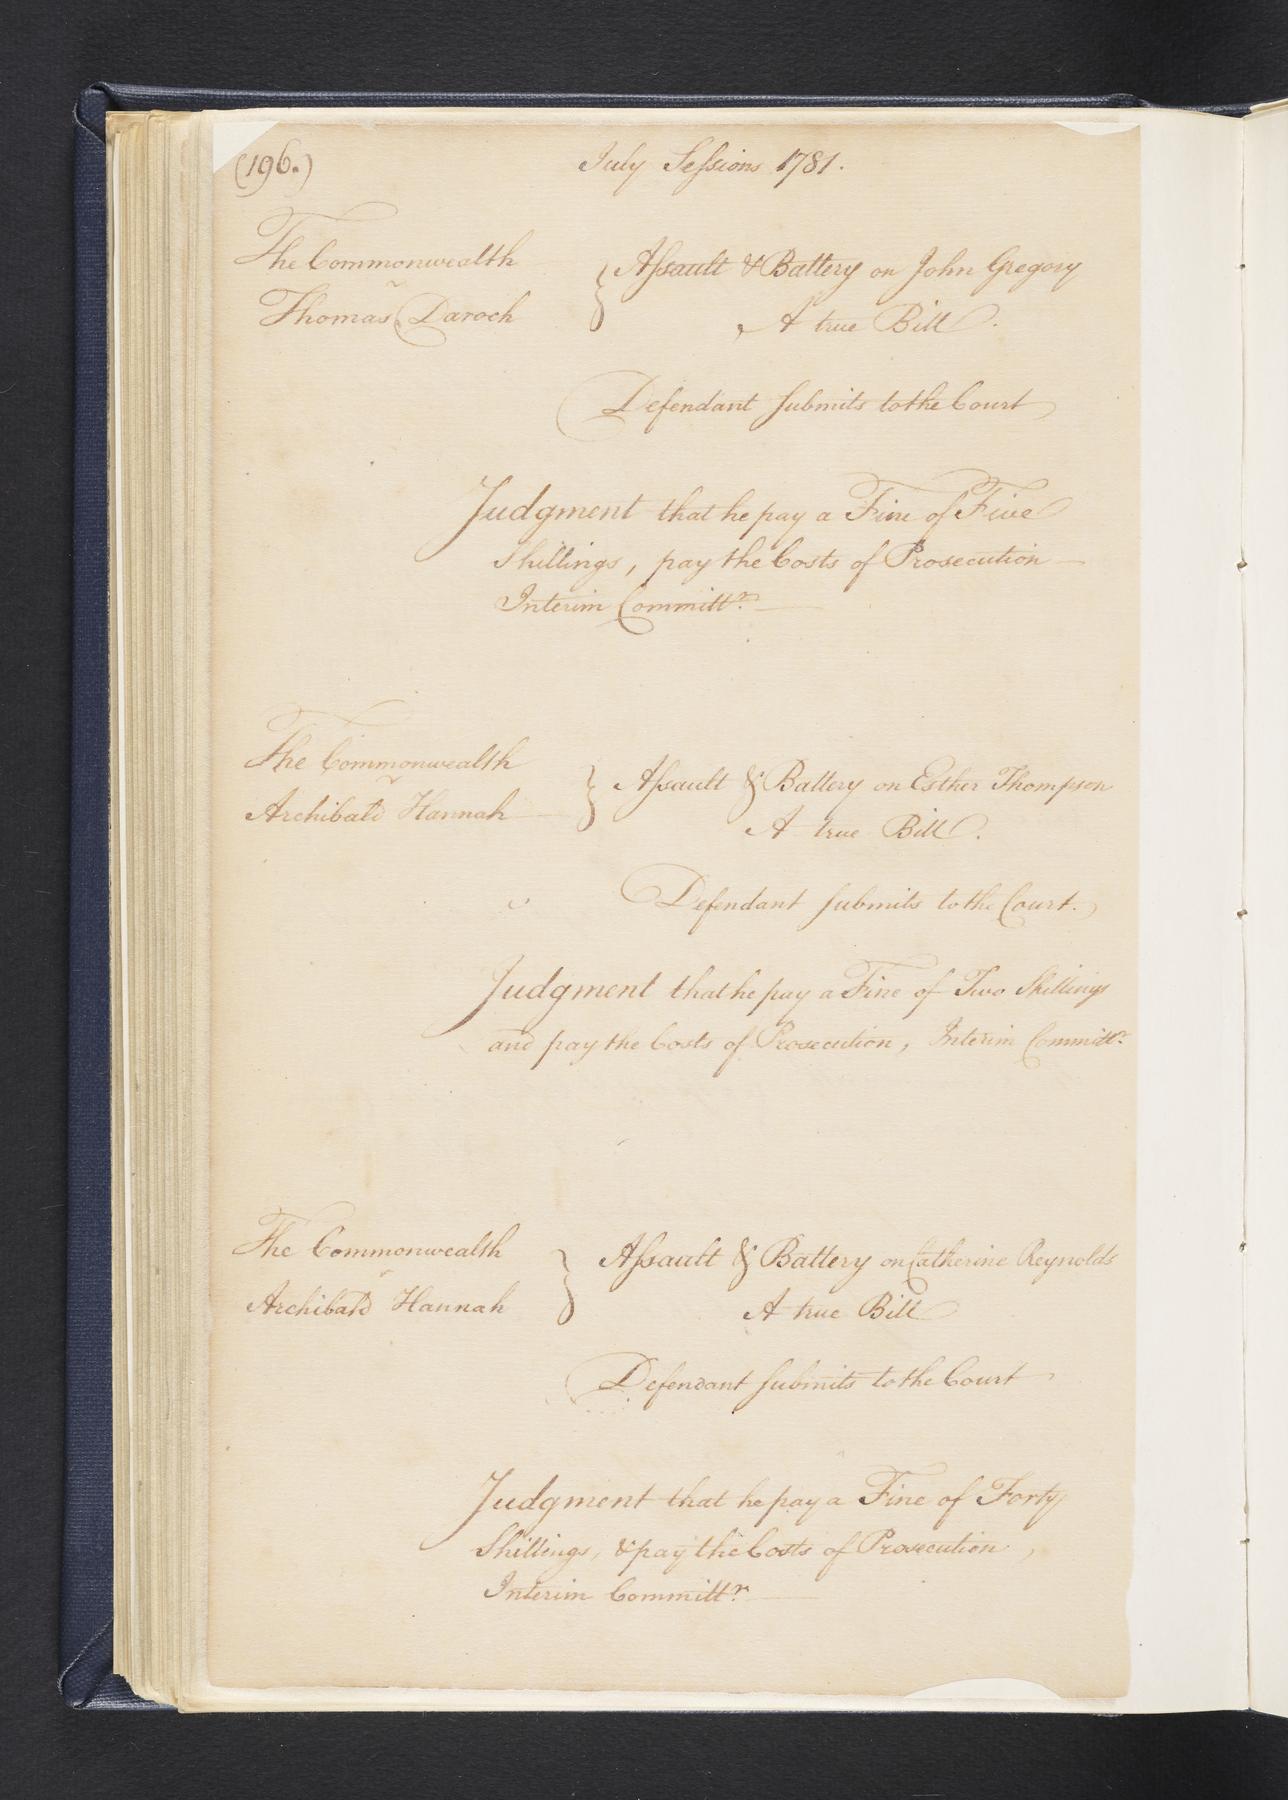 (196.)
July Sessions 1781.
The Commonwealth
v
Thomas Daroch
Assault & Battery on John Gregory
A true Bill.
Defendant submits to the Court
Judgment that he pay a Fine of Five
Shillings, pay the Costs of Prosecution
Interim Committr.
The Commonwealth
v
Archibald Hannah
Assault & Battery on Esther Thompson
A true Bill.
Defendant submits to the Court.
Judgment that he pay a Fine of Two Shillings
and pay the Costs of Prosecution, Interim Committr.
The Commonwealth
v
Archibald Hannah
Assault & Battery on Catherine Reynolds
A true Bill
Defendant submits to the Court
Judgment that he pay a Fine of Forty
Shillings, & pay the Costs of Prosecution,
Interim Committr.